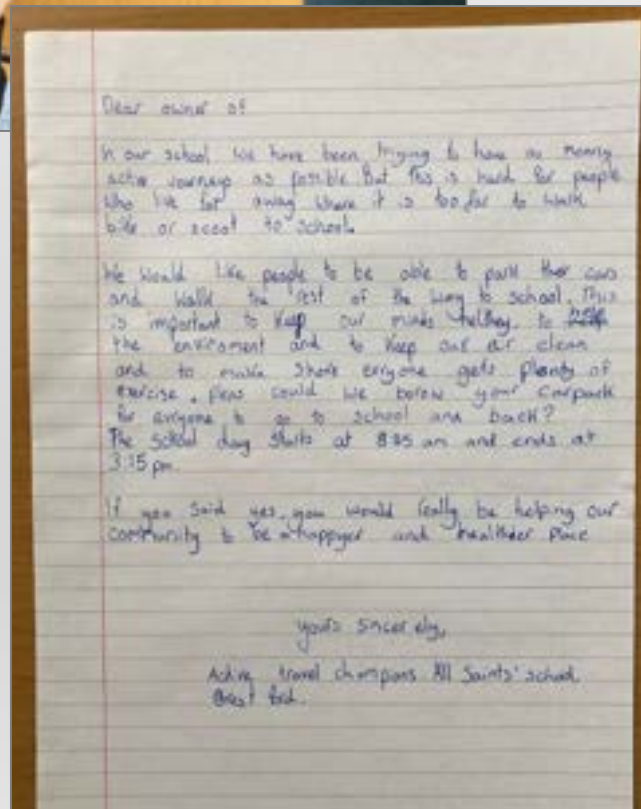 Dear owner of
In our school we have been trying to have as many
active journeys as possible But this is hard for people
who live far away where it is too far to walk
bike or scoot to school.
We would like people to be able to park ther cars
and walk the rest of the way to school. This
is important to keep our minds helthey, to
the enviroment and to keep our air clean
and to make shore eryone gets plenty of
exercise. pleas could we borow your carpark
for evryone to go to school and back?
The school day starts at and ends at
3:15 pm.
If you said yes, you would really be helping our
community to be a happyer and healthder place
yours sincerely,
Active travel champions All Saints' school,